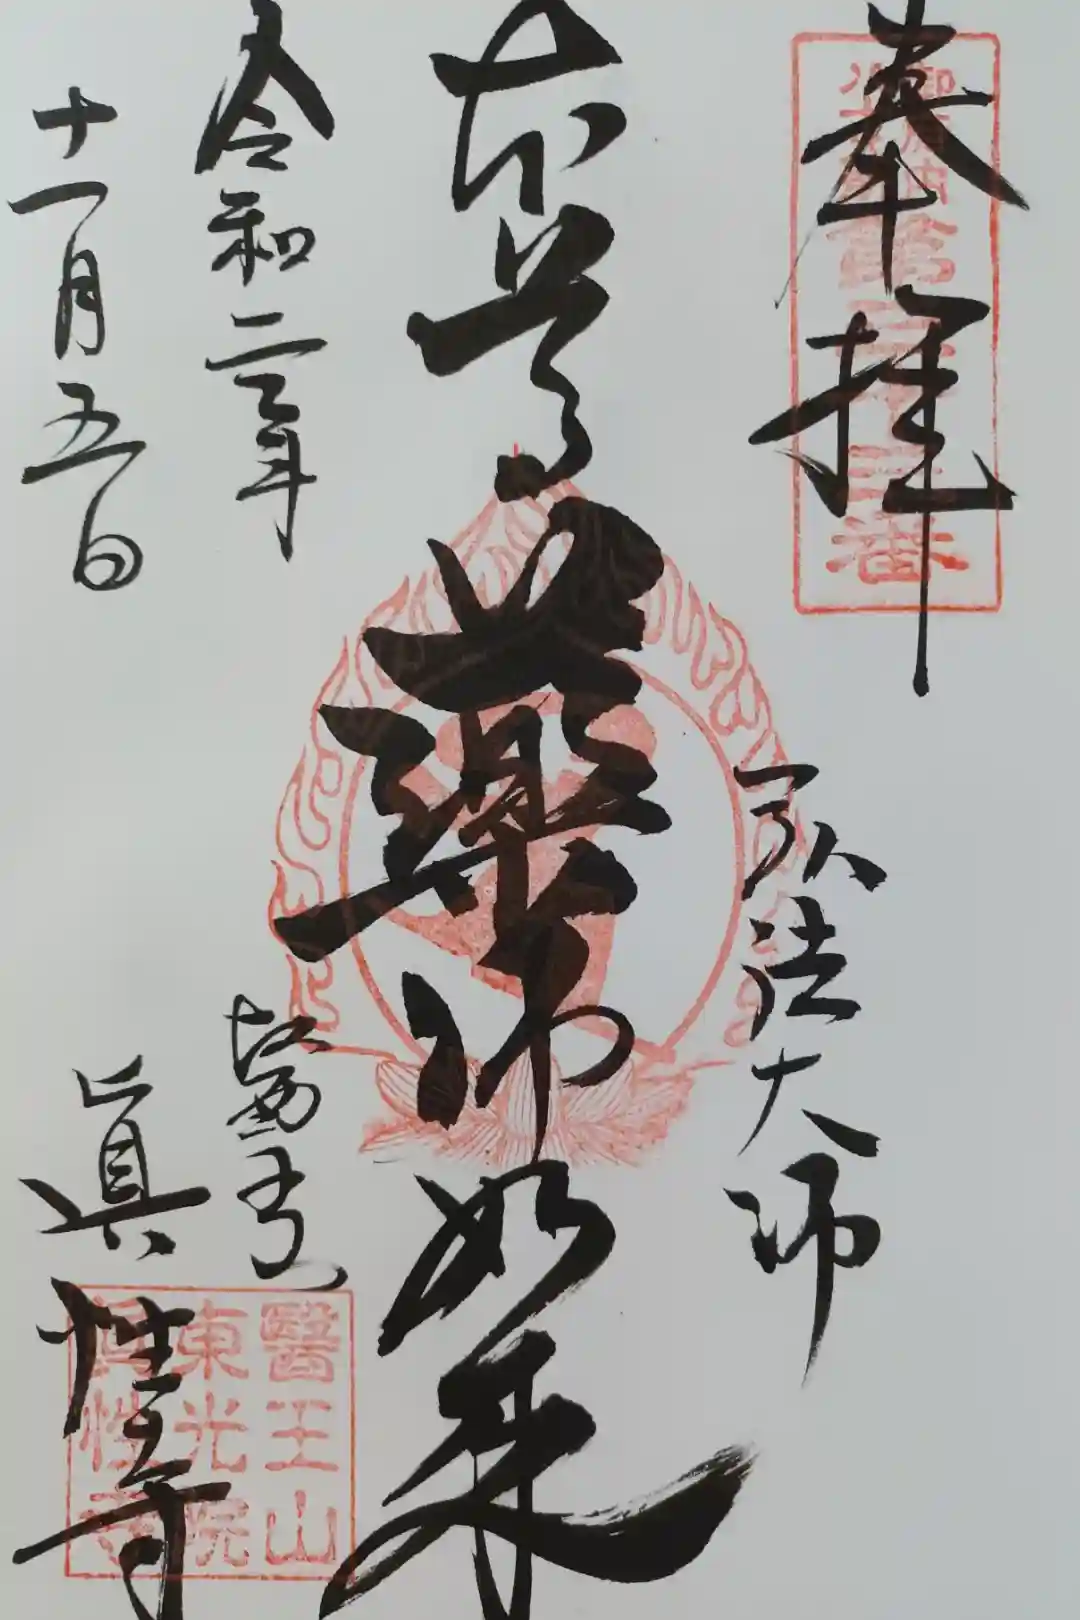 奉拝
弘法大師
本尊
薬師如来
令和二年
十一月五日
真性寺
醫王山
東光院
眞性寺